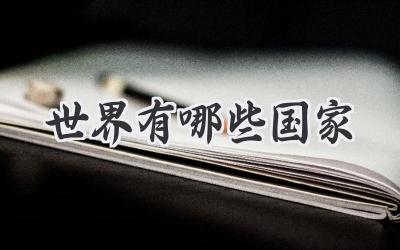 世界有哪些国家